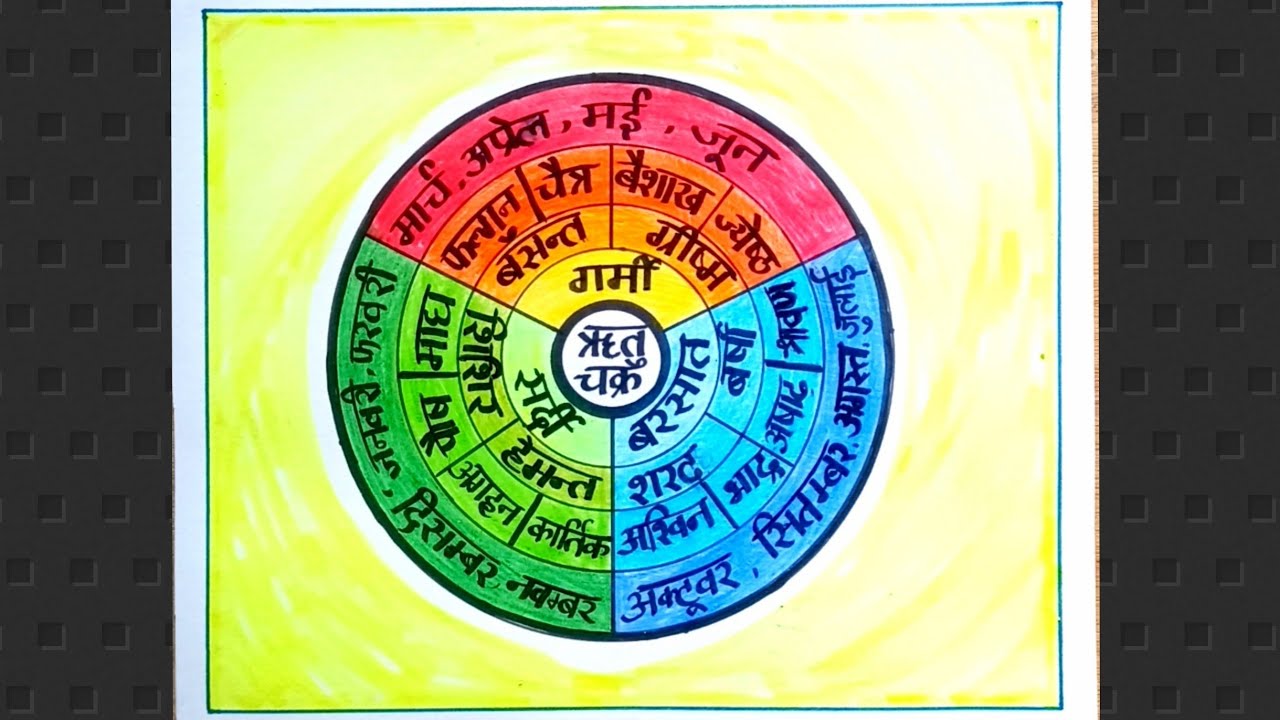 ऋतु
चक्र
मार्च, अप्रेल, मई, जून
फल्गुन
चैत्र
बैशाख
ज्येष्ठ
बसन्त
ग्रीष्म
गर्मी
जुलाई, अगस्त, सितम्बर, अक्टूवर
श्रावण
अषाढ
भाद्र
अश्विन
वर्षा
शरद
बरसात
नवम्बर, दिसम्बर, जनवरी, फरवरी
कार्तिक
अगहन
पौष
माघ
हेमन्त
शिशिर
सर्दी